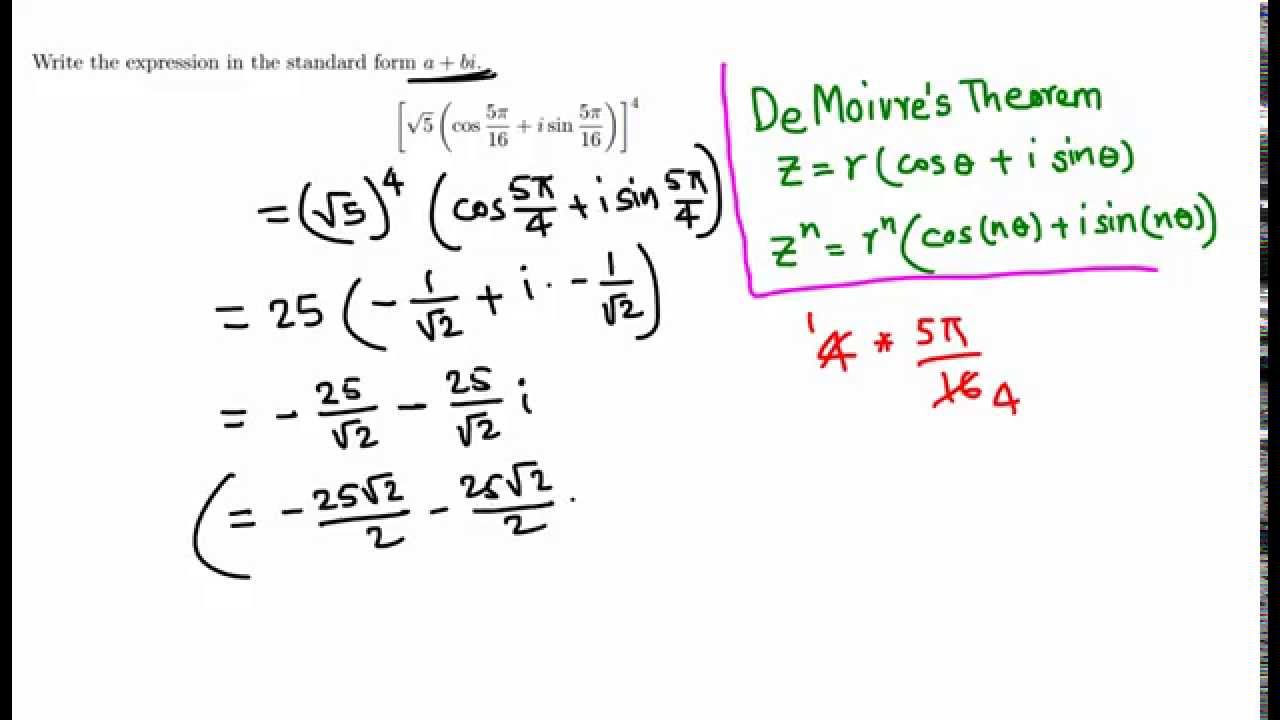 Write the expression in the standard form a + bi.
[√5 (cos 5π/16 + i sin 5π/16)]^4
= (√5)^4 (cos 5π/4 + i sin 5π/4)
= 25 (- 1/√2 + i · - 1/√2)
= - 25/√2 - 25/√2 i
(= - 25√2/2 - 25√2/2 .
De Moivre's Theorem
z = r (cos θ + i sin θ)
z^n = r^n (cos(nθ) + i sin(nθ))
1
4 * 5π/16 4